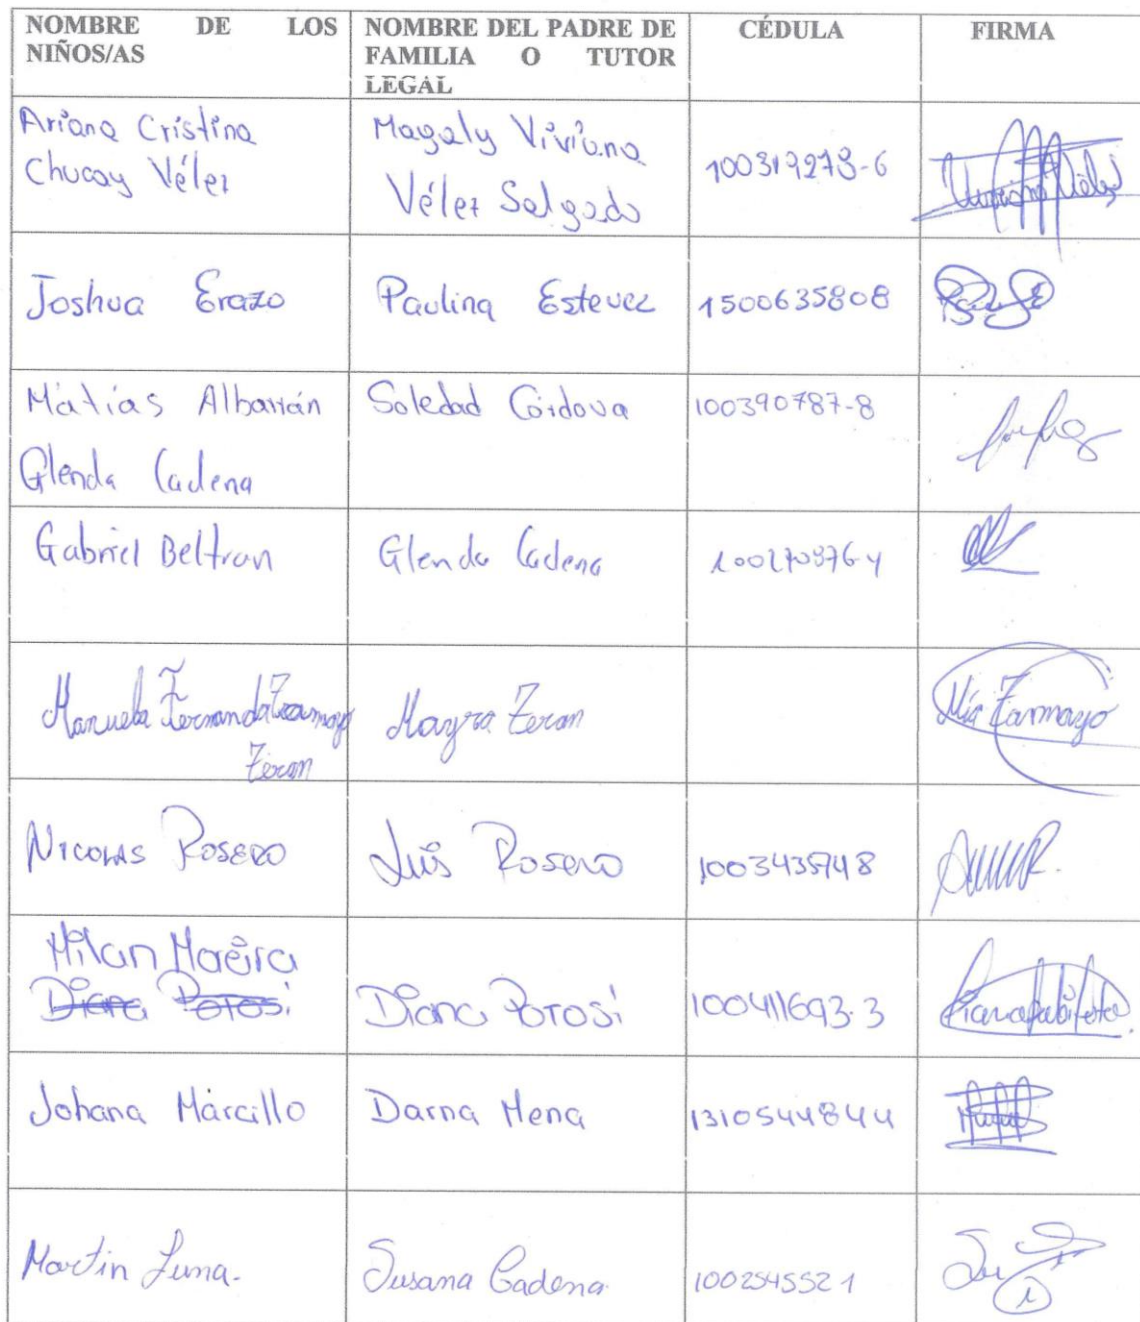 NOMBRE DE LOS
NIÑOS/AS
NOMBRE DEL PADRE DE
FAMILIA O TUTOR
LEGAL
CÉDULA
FIRMA
Ariana Cristina
Chucay Vélez
Magaly Viviana
Vélez Salgado
100319273-6
Joshua Erazo
Paulina Estevez
1500635808
Matías Albarrán
Glenda Cadena
Soledad Córdova
100390787-8
Gabriel Beltran
Glenda Cadena
Manuela Fernanda
Teran
Mayra Teran
Nicolas Rosero
Luis Rosero
Milan Moeira
Diana Potosi
Diana Potosi
100411693-3
Johana Márcillo
Darna Mena
1310544844
Martin Luna.
Susana Cadena.
1002545521